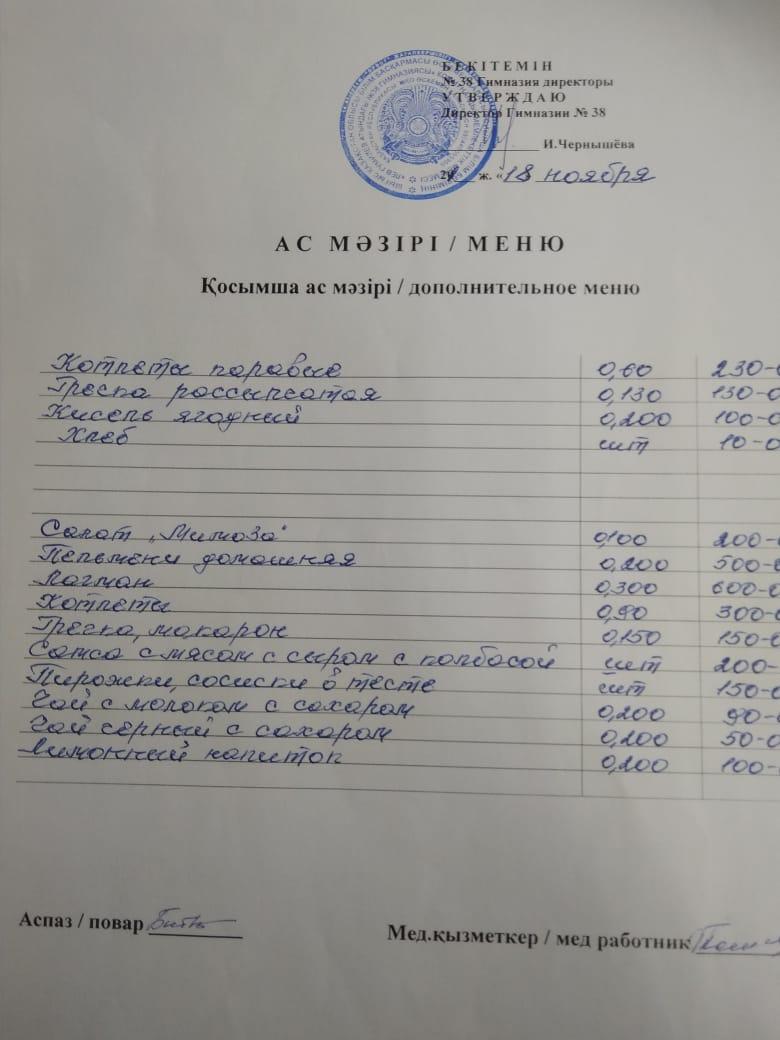 БЕКІТЕМІН
№ 38 Гимназия директоры
УТВЕРЖДАЮ
Директор Гимназии № 38
И.Чернышёва
20 ж. «18 ноября
АС МӘЗІРІ / МЕНЮ
Қосымша ас мәзірі / дополнительное меню
Котлеты паровые 0,60 230-0
Гречка рассыпчатая 0,130 130-0
Кисель ягодный 0,200 100-0
Хлеб шт 10-0
Салат „Мимоза" 0,100 200-0
Пельмени домашняя 0,200 500-0
Лагман 0,300 600-0
Котлеты 0,90 300-0
Гречка, макарон 0,150 150-0
Самса с мясом с сыром с колбасой шт 200-
Пирожки, сосиски в тесте шт 150-0
Чай с молоком с сахаром 0,200 90-0
Чай чёрный с сахаром 0,200 50-0
Лимонный напиток 0,200 100-
Аспаз / повар
Мед.қызметкер / мед работник